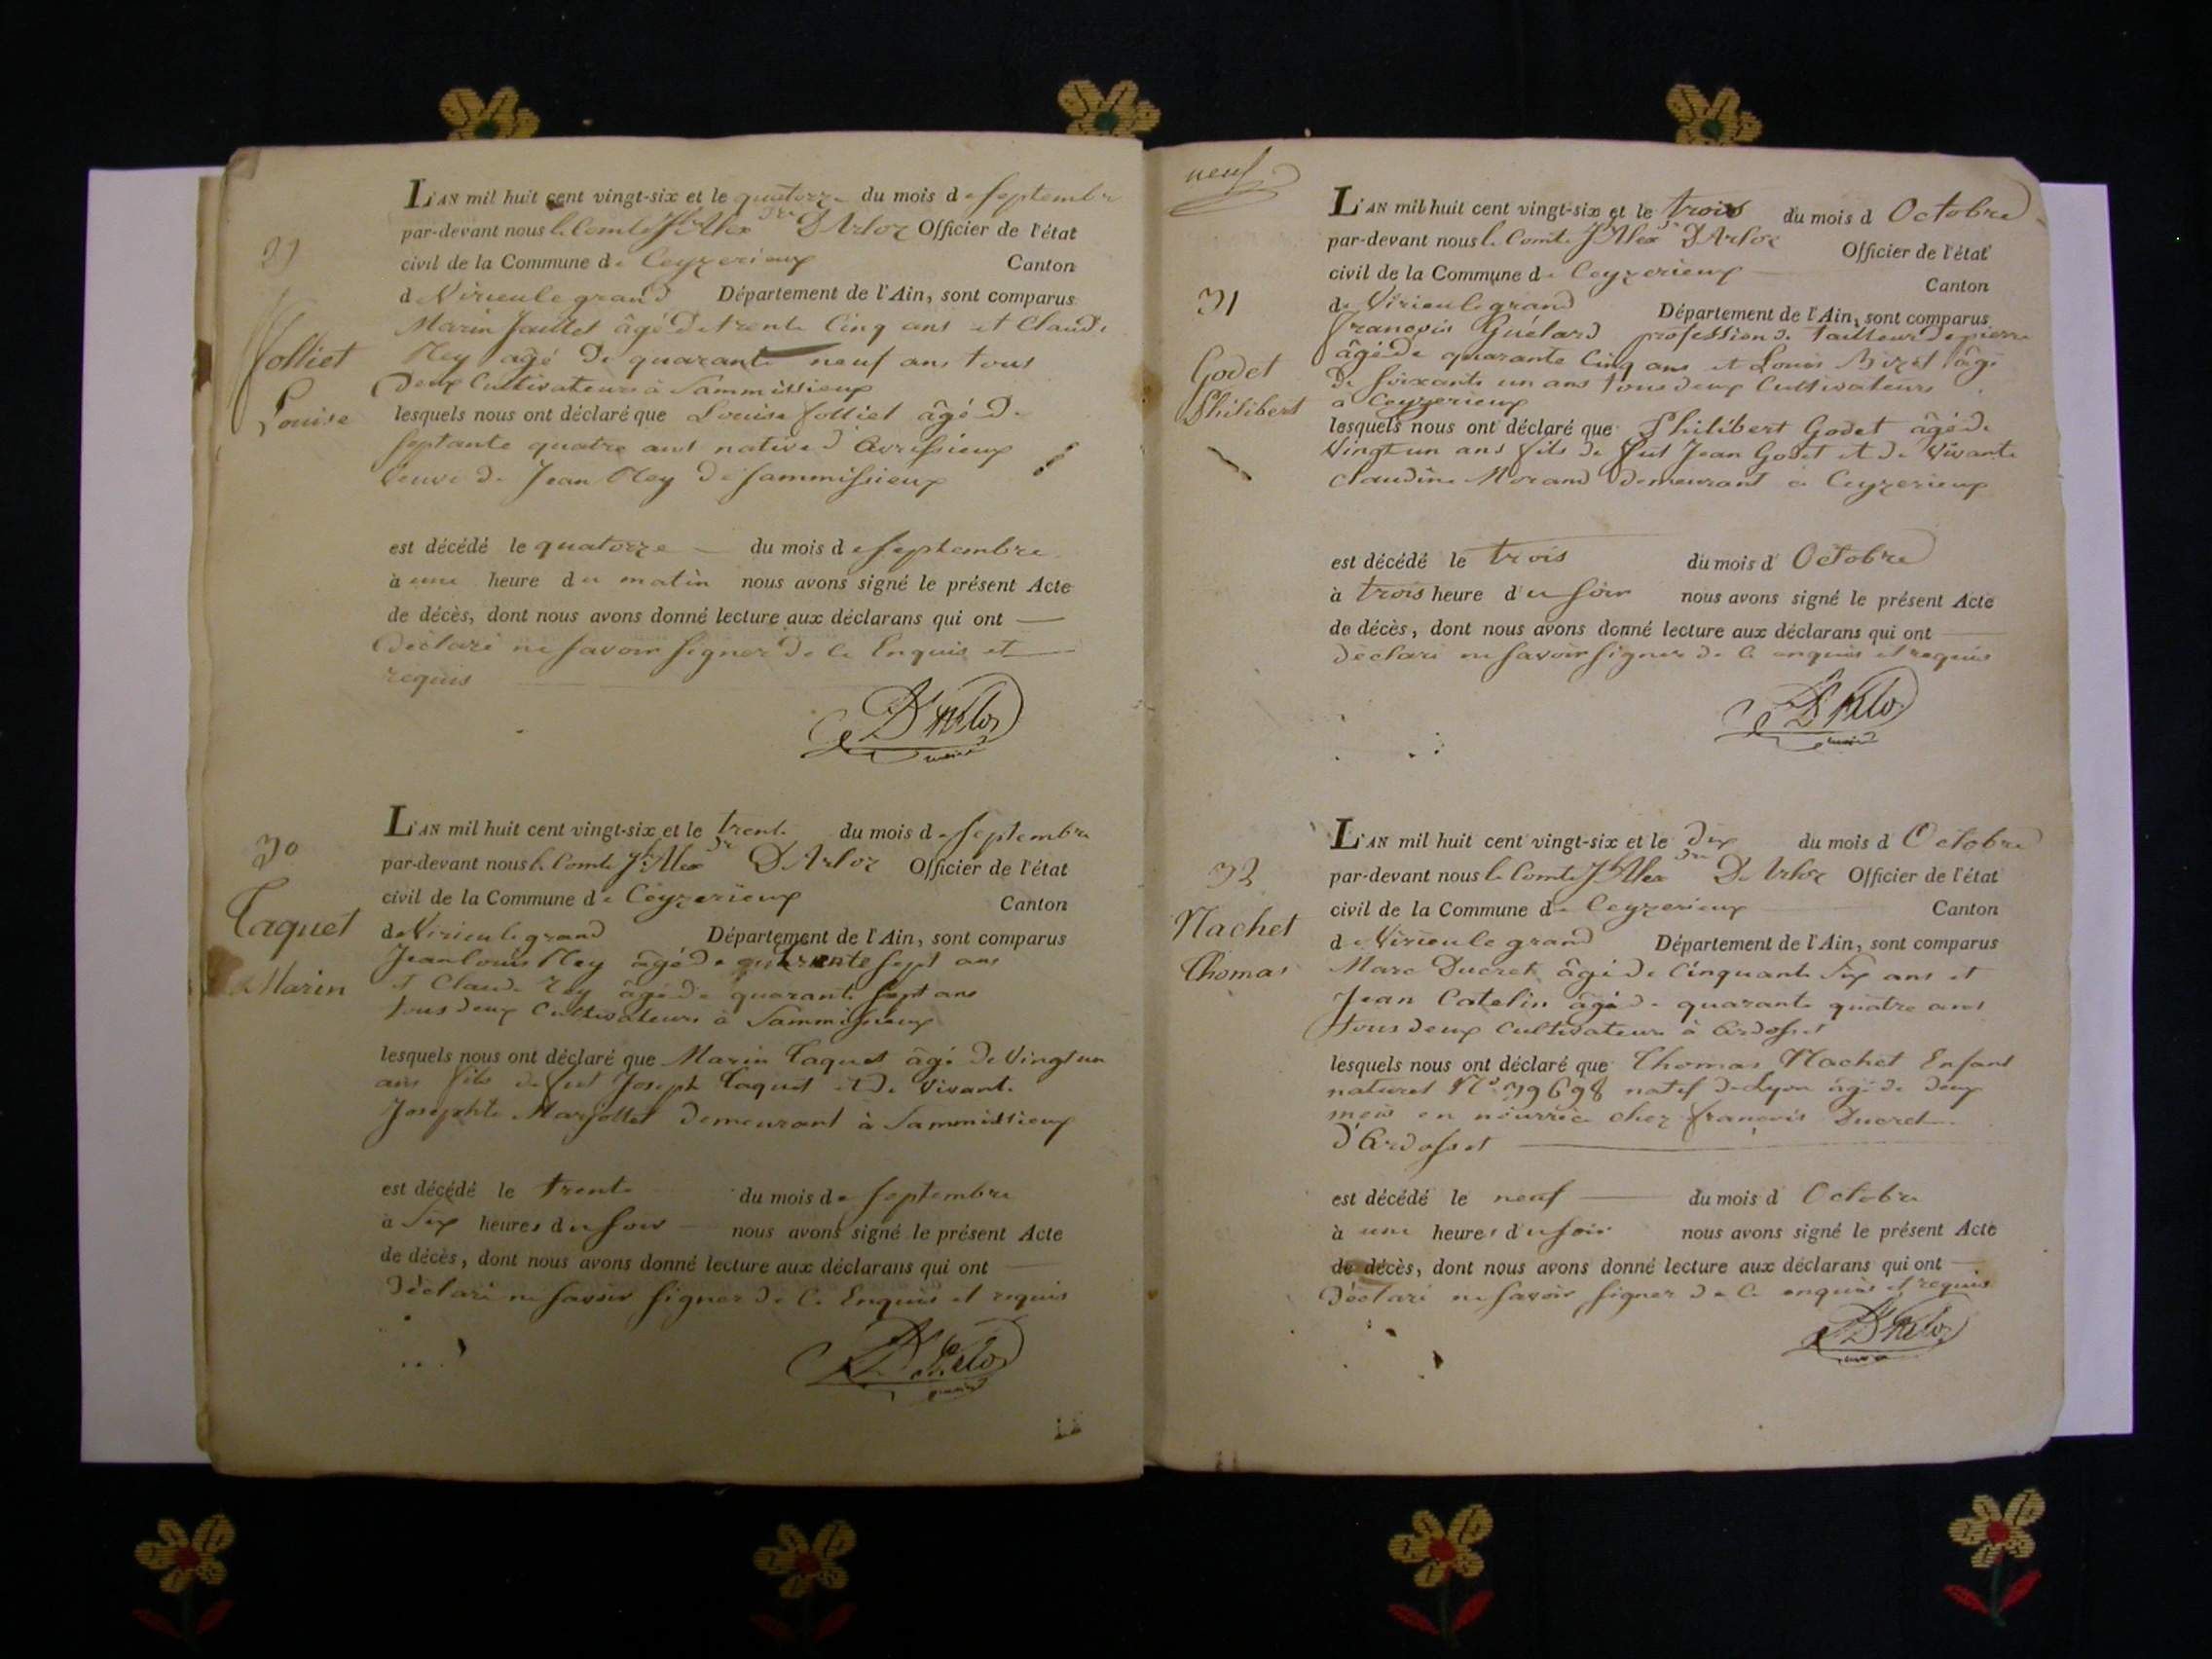 29
Jolliet
Louise
L'AN mil huit cent vingt-six et le quatorze du mois de Septembre
par-devant nous le Comte Jh Alexdre D'Arloz Officier de l'état
civil de la Commune de Ceyzerieux Canton
de Virieu le grand Département de l'Ain, sont comparus
Marin Jaillet âgé de trente Cinq ans et Claude
Rey âgé de quarante neuf ans tous
Deux Cultivateurs à Sammissieux
lesquels nous ont déclaré que Louise Jolliet âgé de
septante quatre ans native d'Avrissieux
veuve de Jean Rey de Sammissieux
est décédé le quatorze du mois de Septembre
à une heure du matin nous avons signé le présent Acte
de décès, dont nous avons donné lecture aux déclarans qui ont
Déclaré ne savoir signer de ce Enquis et
requis
D'Arloz
30
Taquet
Marin
L'AN mil huit cent vingt-six et le trente du mois de Septembre
par-devant nous le Comte Jh Alexdre D'Arloz Officier de l'état
civil de la Commune de Ceyzerieux Canton
de Virieu le grand Département de l'Ain, sont comparus
Jean Louis Rey âgé de sept ans
et Claude Rey âgé de quarante sept ans
tous deux Cultivateurs à Sammissieux
lesquels nous ont déclaré que Marin Taquet âgé de Vingt un
ans fils de fut Joseph Taquet et de vivante
Josephte Marjollet demeurant à Sammissieux
est décédé le trente du mois de Septembre
à Six heures du soir nous avons signé le présent Acte
de décès, dont nous avons donné lecture aux déclarans qui ont
Déclaré ne savoir signer de ce Enquis et requis
D'Arloz
neuf
31
Godet
Philibert
L'AN mil huit cent vingt-six et le trois du mois d Octobre
par-devant nous le Comte Jh Alexdre D'Arloz Officier de l'état
civil de la Commune de Ceyzerieux Canton
de Virieu le grand Département de l'Ain, sont comparus
françois Guélard profession de tailleur de pierre
âgé de quarante Cinq ans et Louis Bizet âgé
de soixante un ans tous deux Cultivateurs
à Ceyzerieux
lesquels nous ont déclaré que Philibert Godet âgé de
Vingt un ans fils de fut Jean Godet et de Vivante
Claudine Morand demeurant à Ceyzerieux
est décédé le trois du mois d' Octobre
à trois heure du soir nous avons signé le présent Acte
de décès, dont nous avons donné lecture aux déclarans qui ont
déclaré ne savoir signer de ce enquis et requis
D'Arloz
32
Nachet
Thomas
L'AN mil huit cent vingt-six et le Dix du mois d Octobre
par-devant nous le Comte Jh Alexdre D'Arloz Officier de l'état
civil de la Commune de Ceyzerieux Canton
de Virieu le grand Département de l'Ain, sont comparus
Marc Ducret âgé de Cinquante Six ans et
Jean Catelin âgé de quarante quatre ans
tous deux Cultivateurs à Ardosset
lesquels nous ont déclaré que Thomas Nachet Enfant
naturel N° 39698 natif de Lyon âgé de deux
mois en nourrice chez françois Ducret
d'Ardosset
est décédé le neuf du mois d Octobre
à une heures du soir nous avons signé le présent Acte
de décès, dont nous avons donné lecture aux déclarans qui ont
Déclaré ne savoir signer de ce enquis et requis
D'Arloz